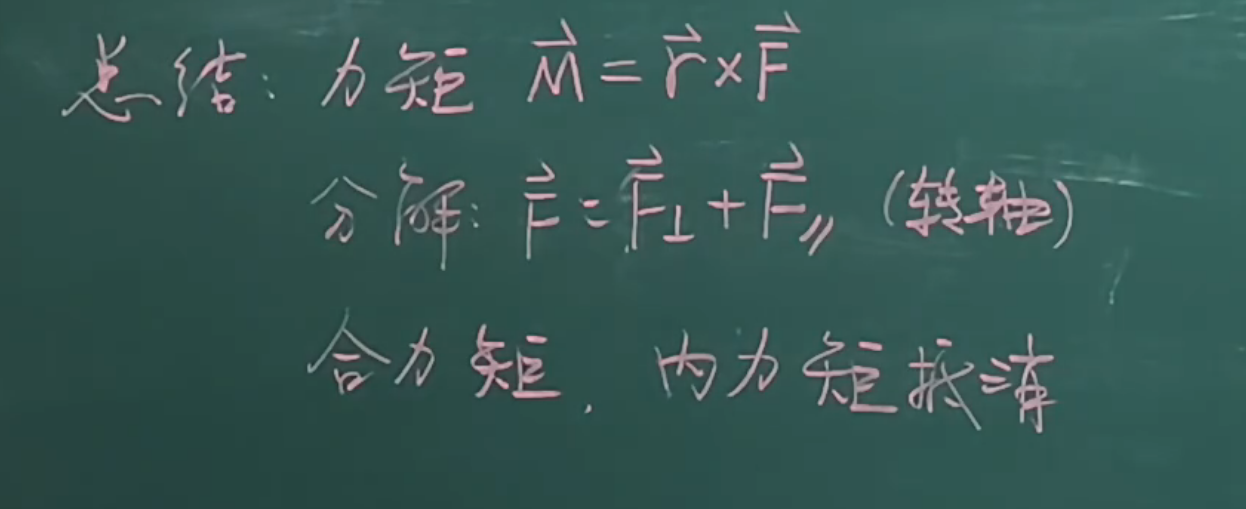 总结: 力矩 M⃗ = r⃗ × F⃗
分解: F⃗ = F⃗⊥ + F⃗∥ (转轴)
合力矩, 内力矩抵消